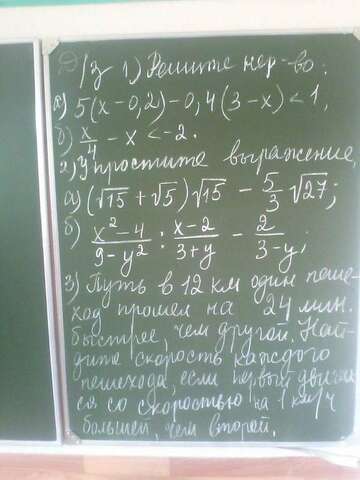 Д/з 1) Решите нер-во:
а) 5(x-0,2)-0,4(3-x)<1,
б) x/4 - x < -2.
2) Упростите выражение,
а) (√15 + √5)√15 - 5/3 √27;
б) (x²-4)/(9-y²) : (x-2)/(3+y) - 2/(3-y);
3) Путь в 12 км один пеше-
ход прошел на 24 мин.
быстрее, чем другой. Най-
дите скорость каждого
пешехода, если первый двигал-
ся со скоростью на 1 км/ч
большей, чем второй.